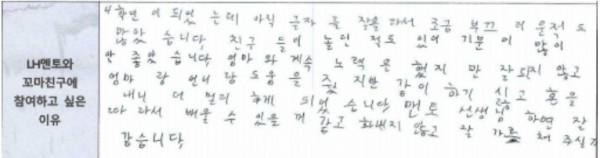 LH멘토와
꼬마친구에
참여하고 싶은
이유
4학년이 되었는데 아직 글자를 잘몰라서 조금 부끄러운적도
많았습니다. 친구들이 놀린적도 있어 기분이 많이
안 좋았습니다. 엄마와 계속 노력은 했지만 잘되지 않고
엄마랑 언니랑 도움을 줬지만 같이하기 시고 혼을
내니 더 멀리 하게 되었습니다. 멘토 선생님 하면 잘
따라서 배울 수 있을꺼 같고 화내지 않고 잘 가르쳐 주실거
같습니다